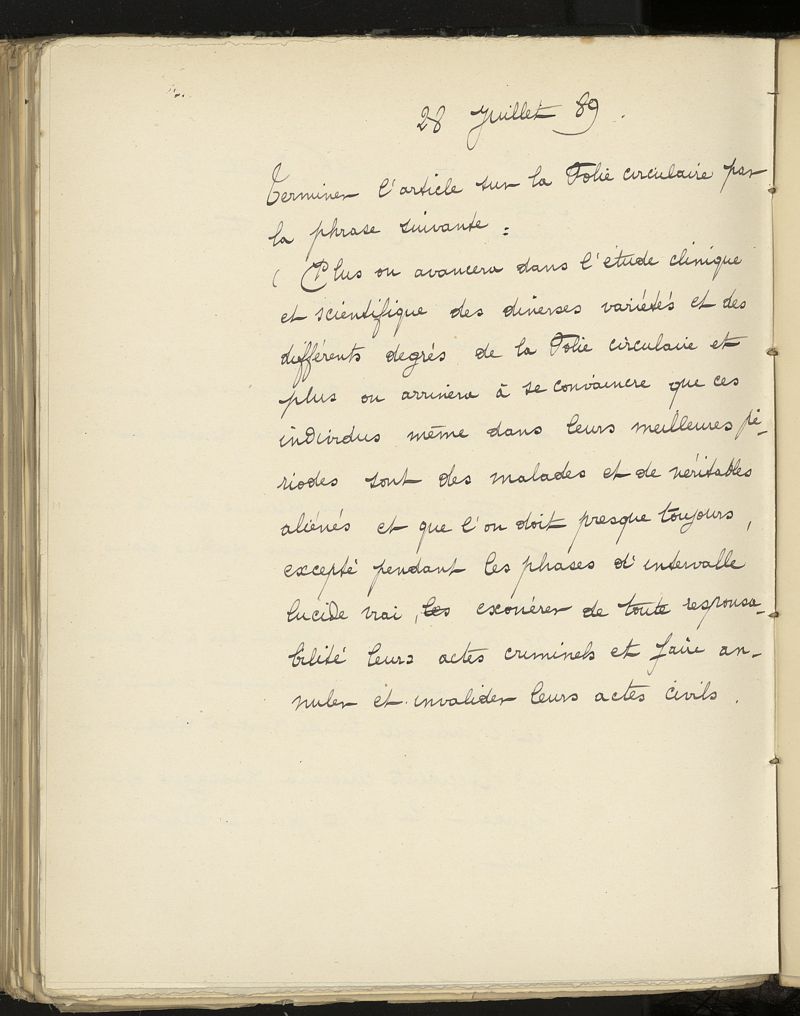 28 Juillet 89.
Terminer l'article sur la Folie circulaire par
la phrase suivante :
( Plus on avancera dans l'étude clinique
et scientifique des diverses variétés et des
différents degrés de la Folie circulaire et
plus on arrivera à se convaincre que ces
individus même dans leurs meilleures pé-
riodes sont des malades et de véritables
aliénés et que l'on doit presque toujours,
excepté pendant les phases d'intervalle
lucide vrai, les exonérer de toute responsa-
bilité leurs actes criminels et faire an-
nuler et invalider leurs actes civils.